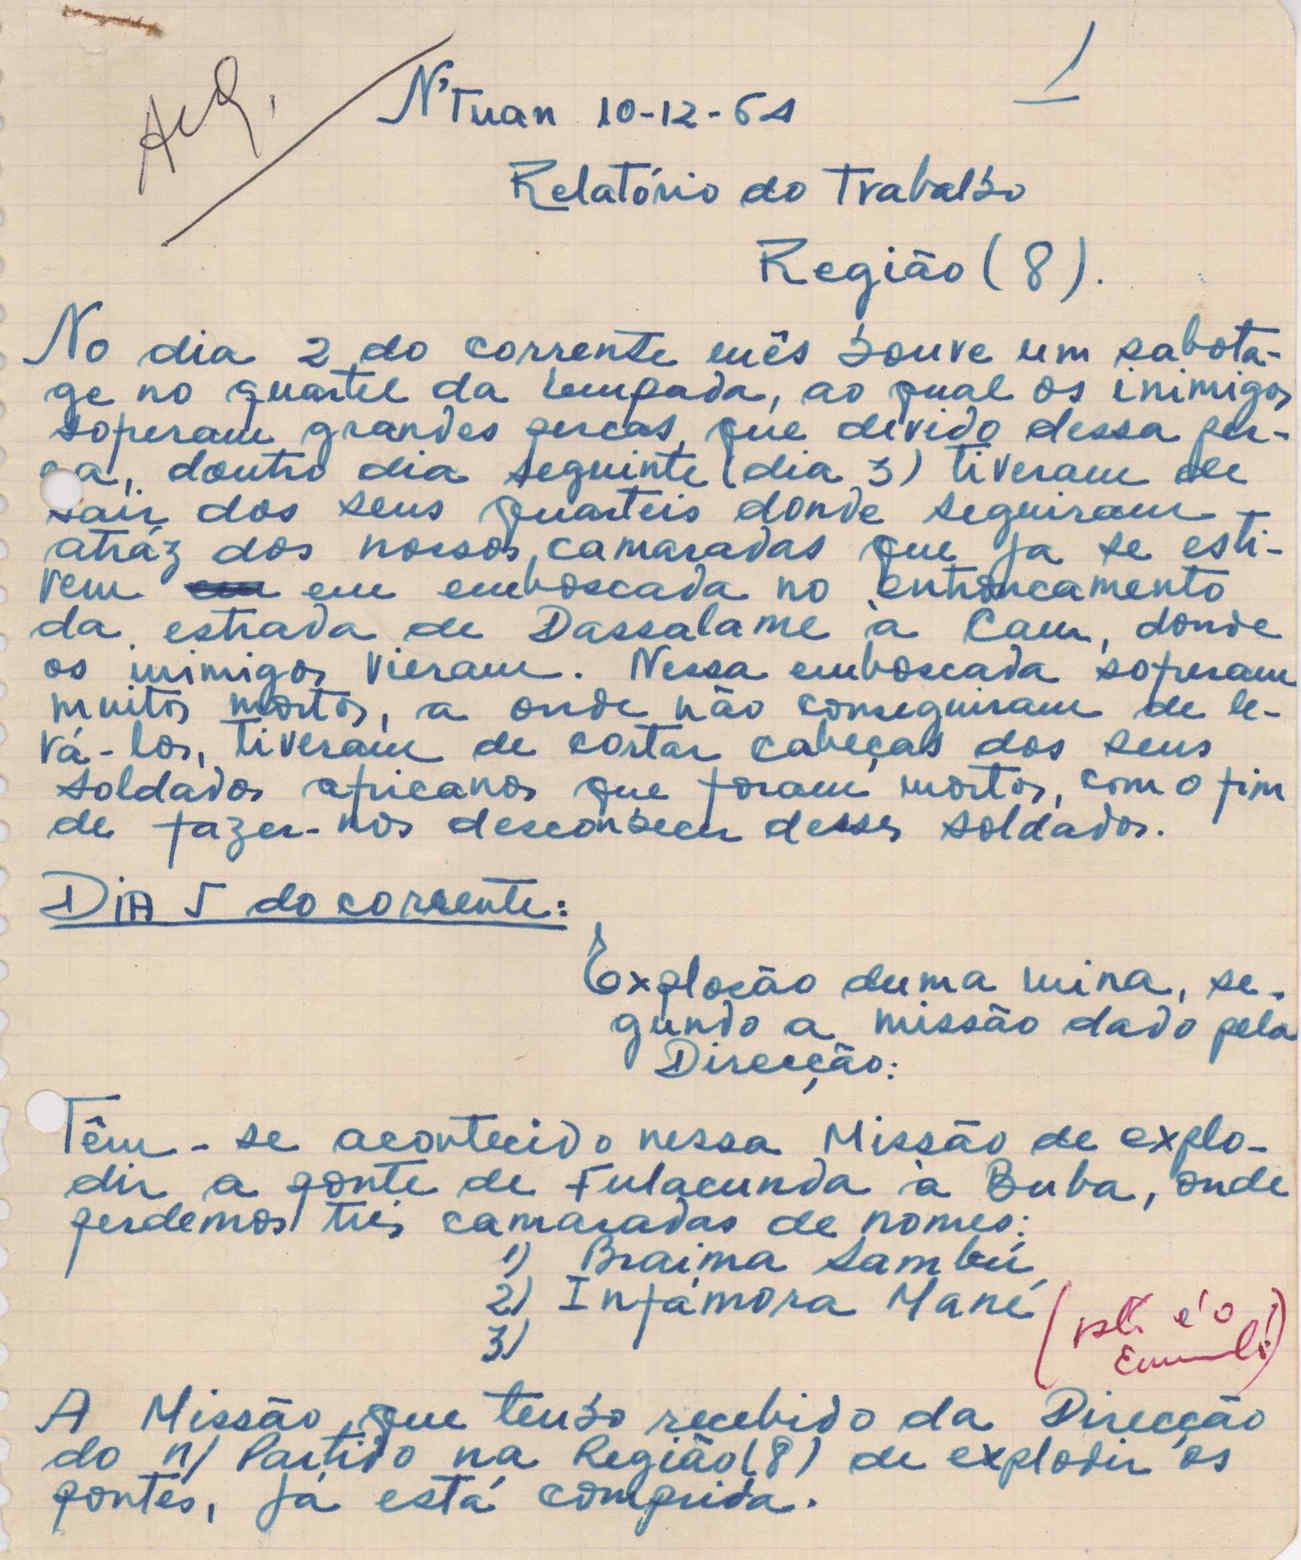 1
Arq.
N'Tuan 10-12-64
Relatório do Trabalho
Região (8).
No dia 2 do corrente mês houve um sabota-
ge no quartel da Lempada, ao qual os inimigos
soperam grandes percas, que devido dessa per-
ca, doutro dia seguinte (dia 3) tiveram de
sair dos seus quarteis donde seguiram
atráz dos nossos camaradas que já se esti-
vem em emboscada no entroncamento
da estrada de Dassalame à Cam, donde
os inimigos vieram. Nessa emboscada soperam
muitos mortos, a onde não conseguiram de le-
vá-los, tiveram de cortar cabeças dos seus
soldados africanos que foram mortos, com o fim
de fazer-nos desconhecer desses soldados.
DIA 5 do corrente:
Explosão duma mina, se-
gundo a missão dado pela
Direcção:
Têm-se acontecido nessa Missão de explo-
dir a ponte de Fulacunda à Buba, onde
perdemos três camaradas de nomes:
1) Braima Sambú
2) Infámora Mané
3)
( é o )
A Missão que tenho recebido da Direcção
do n/ Partido na Região (8) de explodir os
pontes, já está comprida.